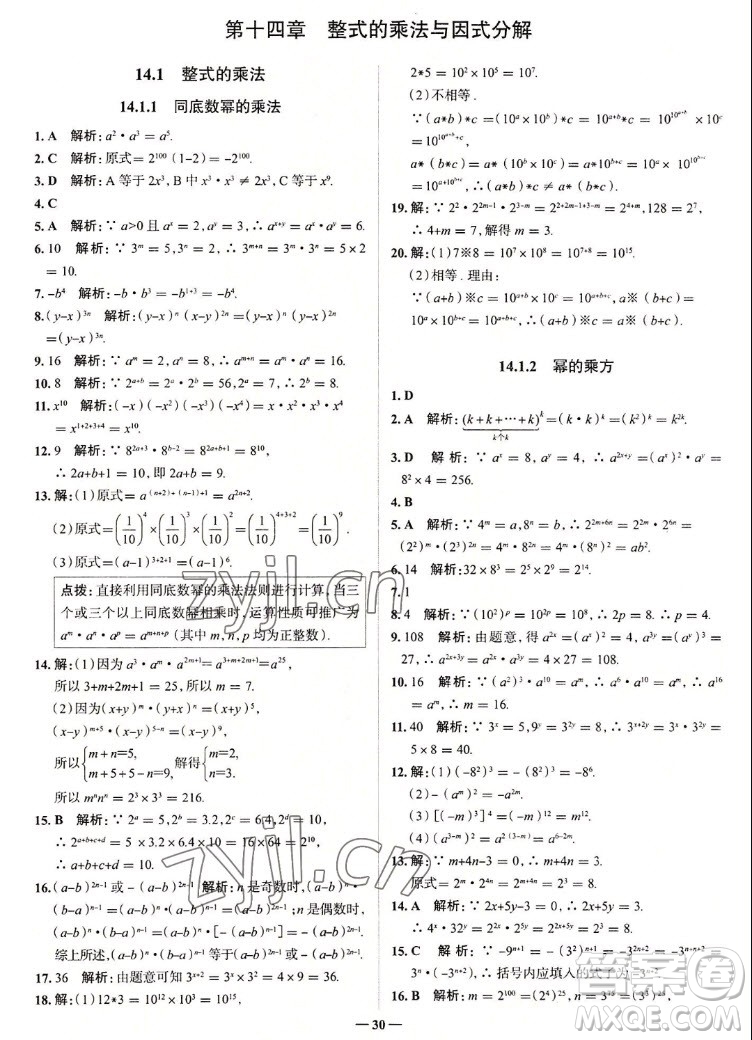 第十四章　整式的乘法与因式分解
14.1　整式的乘法
14.1.1　同底数幂的乘法
1. A　解析:a²·a³=a⁵.
2. C　解析:原式=2¹⁰⁰(1-2)=-2¹⁰⁰.
3. D　解析:A 等于 2x³,B 中 x³·x³≠2x³,C 等于 x⁹.
4. C
5. A　解析:∵a>0 且 a^x=2,a^y=3,∴a^{x+y}=a^x·a^y=6.
6. 10　解析:∵3^m=5,3^n=2,∴3^{m+n}=3^m·3^n=5×2
=10.
7. -b⁴　解析:-b·b³=-b^{1+3}=-b⁴.
8. (y-x)^{3n}　解析:(y-x)^n(x-y)^{2n}=(y-x)^n(y-x)^{2n}
=(y-x)^{3n}.
9. 16　解析:∵a^m=2,a^n=8,∴a^{m+n}=a^m·a^n=16.
10. 8　解析:∵2^{a+b}=2^a·2^b=56,2^b=7,∴2^a=8.
11. x¹⁰　解析:(-x)(-x)²(-x)³(-x)⁴=(-x)^{1+2+3+4}
=x^{1+2+3+4}=x¹⁰.
12. 9　解析:∵8^{2a+3}·8^{b-2}=8^{2a+b+1}=8¹⁰,
∴2a+b+1=10,即 2a+b=9.
13. 解:(1)原式=a^{(n+2)+(n-1)}... 
(2)原式=(1/10)⁴×(1/10)³×(1/10)²=(1/10)^{4+3+2}=(1/10)⁹.
(3)原式=(a-1)^{3+2+1}=(a-1)⁶.
点拨:直接利用同底数幂的乘法法则进行计算,当三
个或三个以上同底数幂相乘时,运算性质可推广为
a^m·a^n·a^p=a^{m+n+p}(其中 m,n,p 均为正整数).
14. 解:(1)因为 a³·a^m·a^{2m+1}=a^{3+m+2m+1}=a²⁵,
所以 3+m+2m+1=25,所以 m=7.
(2)因为(x+y)^m·(x+y)^n=(x+y)⁵,
(x-y)^{m+5}·(x-y)^{5-n}=(x-y)⁹,
所以{m+n=5, m+5+5-n=9, 解得{m=2, n=3.
所以 m^n n^n=2³×3³=216.
15. B　解析:∵2^a=5,2^b=3.2,2^c=6.4,2^d=10,
∴2^{a+b+c+d}=5×3.2×6.4×10=16×64=2¹⁰,
∴a+b+c+d=10.
16. (a-b)^{2n-1}或-(a-b)^{2n-1}　解析:n 是奇数时,(a-b)^n·
(b-a)^{n-1}=(a-b)^n·(a-b)^{n-1}=(a-b)^{2n-1};n是偶数时,
(a-b)^n·(b-a)^{n-1}=(a-b)^n·[-(a-b)^{n-1}]=-(a-b)^{2n-1}.
综上所述,(a-b)^n(b-a)^{n-1}等于(a-b)^{2n-1}或-(a-b)^{2n-1}.
17. 36　解析:由题意可知 3^{x+2}=3^x×3²=4×9=36.
18. 解:(1)12*3=10¹²×10³=10¹⁵,
2*5=10²×10⁵=10⁷.
(2)不相等.
∵(a*b)*c=(10^a×10^b)*c=10^{a+b}*c=10^{10^{a+b}}×
10^c=10^{10^{a+b}+c},a*(b*c)=a*(10^b×10^c)=a*10^{b+c}=10^a×10^{10^{b+c}}=
10^{a+10^{b+c}},∴(a*b)*c≠a*(b*c).
19. 解:∵2²·2^{2m-1}·2^{3-m}=2^{2+2m-1+3-m}=2^{4+m},128=2⁷,
∴4+m=7,解得 m=3.
20. 解:(1)7※8=10⁷×10⁸=10^{7+8}=10¹⁵.
(2)相等.理由:
∵(a+b)※c=10^{a+b}×10^c=10^{a+b+c},a※(b+c)=
10^a×10^{b+c}=10^{a+b+c},∴(a+b)※c=a※(b+c).
14.1.2　幂的乘方
1. D
2. A　解析:(k+k+…+k)^k=(k·k)^k=(k²)^k=k^{2k}.
k个k
3. C　解析:∵a^x=8,a^y=4,∴a^{2x+y}=(a^x)²·a^y=
8²×4=256.
4. B
5. A　解析:∵4^m=a,8^n=b,∴2^{2m+6n}=2^{2m}·2^{6n}=
(2²)^m·(2³)^{2n}=4^m·8^{2n}=4^m·(8^n)²=ab².
6. 14　解析:32×8³=2⁵×2⁹=2¹⁴.
7. 1
8. 4　解析:∵(10²)^p=10^{2p}=10⁸,∴2p=8,∴p=4.
9. 108　解析:由题意,得 a^{2x}=(a^x)²=4,a^{3y}=(a^y)³=
27,∴a^{2x+3y}=a^{2x}·a^{3y}=4×27=108.
10. 16　解析:∵(a²)³·a¹⁰=a^m,∴a⁶·a¹⁰=a^m,∴a¹⁶
=a^m,∴m=16.
11. 40　解析:∵3^x=5,9^y=3^{2y}=8,∴3^{x+2y}=3^x·3^{2y}=
40.
12. 解:(1)(-8²)³=-(8²)³=-8⁶.
(2)-(a^m)²=-a^{2m}.
(3)[(-m)³]⁴=(-m)¹²=m¹².
(4)(a^{3-m})²=a^{2(3-m)}=a^{6-2m}.
13. 解:∵m+4n-3=0,∴m+4n=3,
14. A　解析:∵2x+5y-3=0,∴2x+5y=3.
∴4^x·32^y=2^{2x}·2^{5y}=2^{2x+5y}=2³=8.
15. C　解析:∵-9^{n+1}=-(3²)^{n+1}=-3^{2n+2}
∴括号内应填入的式子为-3^{n+2}.
16. B　解析:m=2¹⁰⁰=(2⁴)²⁵,n=3⁷⁵=(3³)²⁵,
30
zyjl.cn
zyjl.cn
答案卷
MXQE.COM